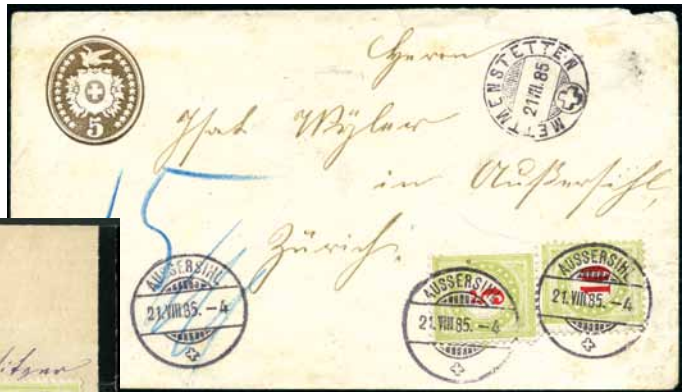 5
Herrn
METTMENSTETTEN
21 VIII 85
Isak Wyler
in Außersihl,
Zürich.
15
AUSSERSIHL
21. VIII 85. – 4
AUSSERSIHL
21. VIII 85. – 4
5
AUSSERSIHL
21. VIII 85. – 4
10